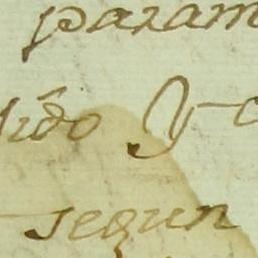 param
ido y
segun